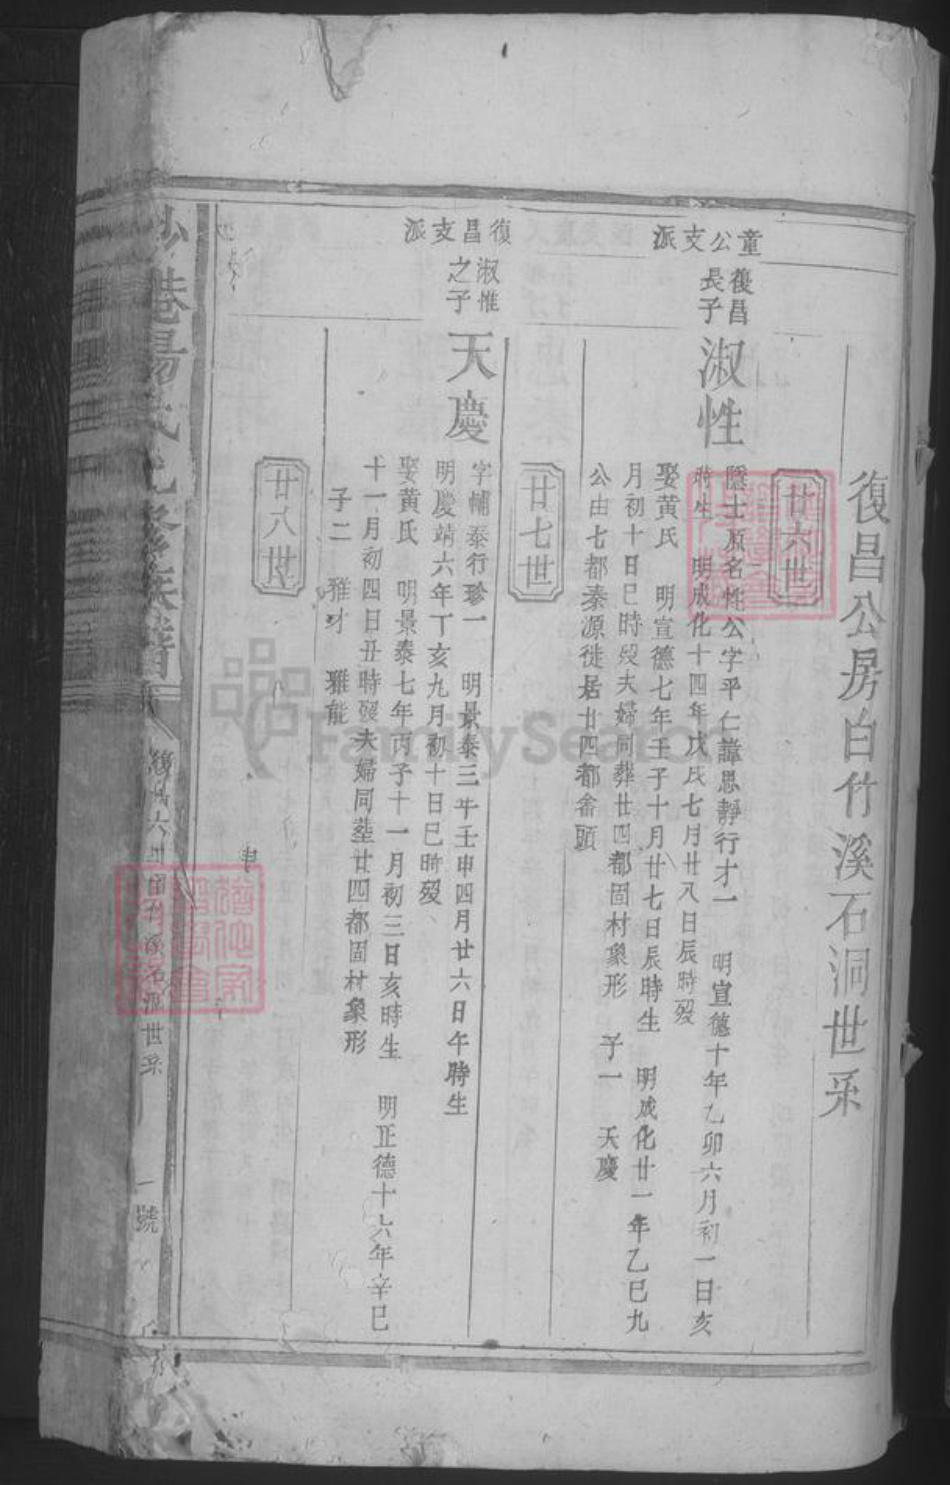 復昌公房白竹溪石洞世系
廿六世
童公支派
復昌
長子
淑性
隱士原名 公字平仁諱思靜行才一　明宣德十年乙卯六月初一日亥
時生　明成化十四年戊戌七月廿八日辰時歿
娶黄氏　明宣德七年壬子十月廿七日辰時生　明成化廿一年乙巳九
月初十日巳時歿夫婦同葬廿四都固村象形　子一　天慶
公由七都秦源徙居廿四都畲頭
廿七世
復昌支派
淑惟
之子
天慶
字輔泰行珍一　明景泰三年壬申四月廿六日午時生
明慶靖六年丁亥九月初十日巳時歿
娶黄氏　明景泰七年丙子十一月初三日亥時生　明正德十六年辛巳
十一月初四日丑時歿夫婦同塟廿四都固村象形
子二　雅才　雅能
廿八世
湯氏 修族譜
復 廿六世 白竹溪石洞世系
一號
FamilySearch